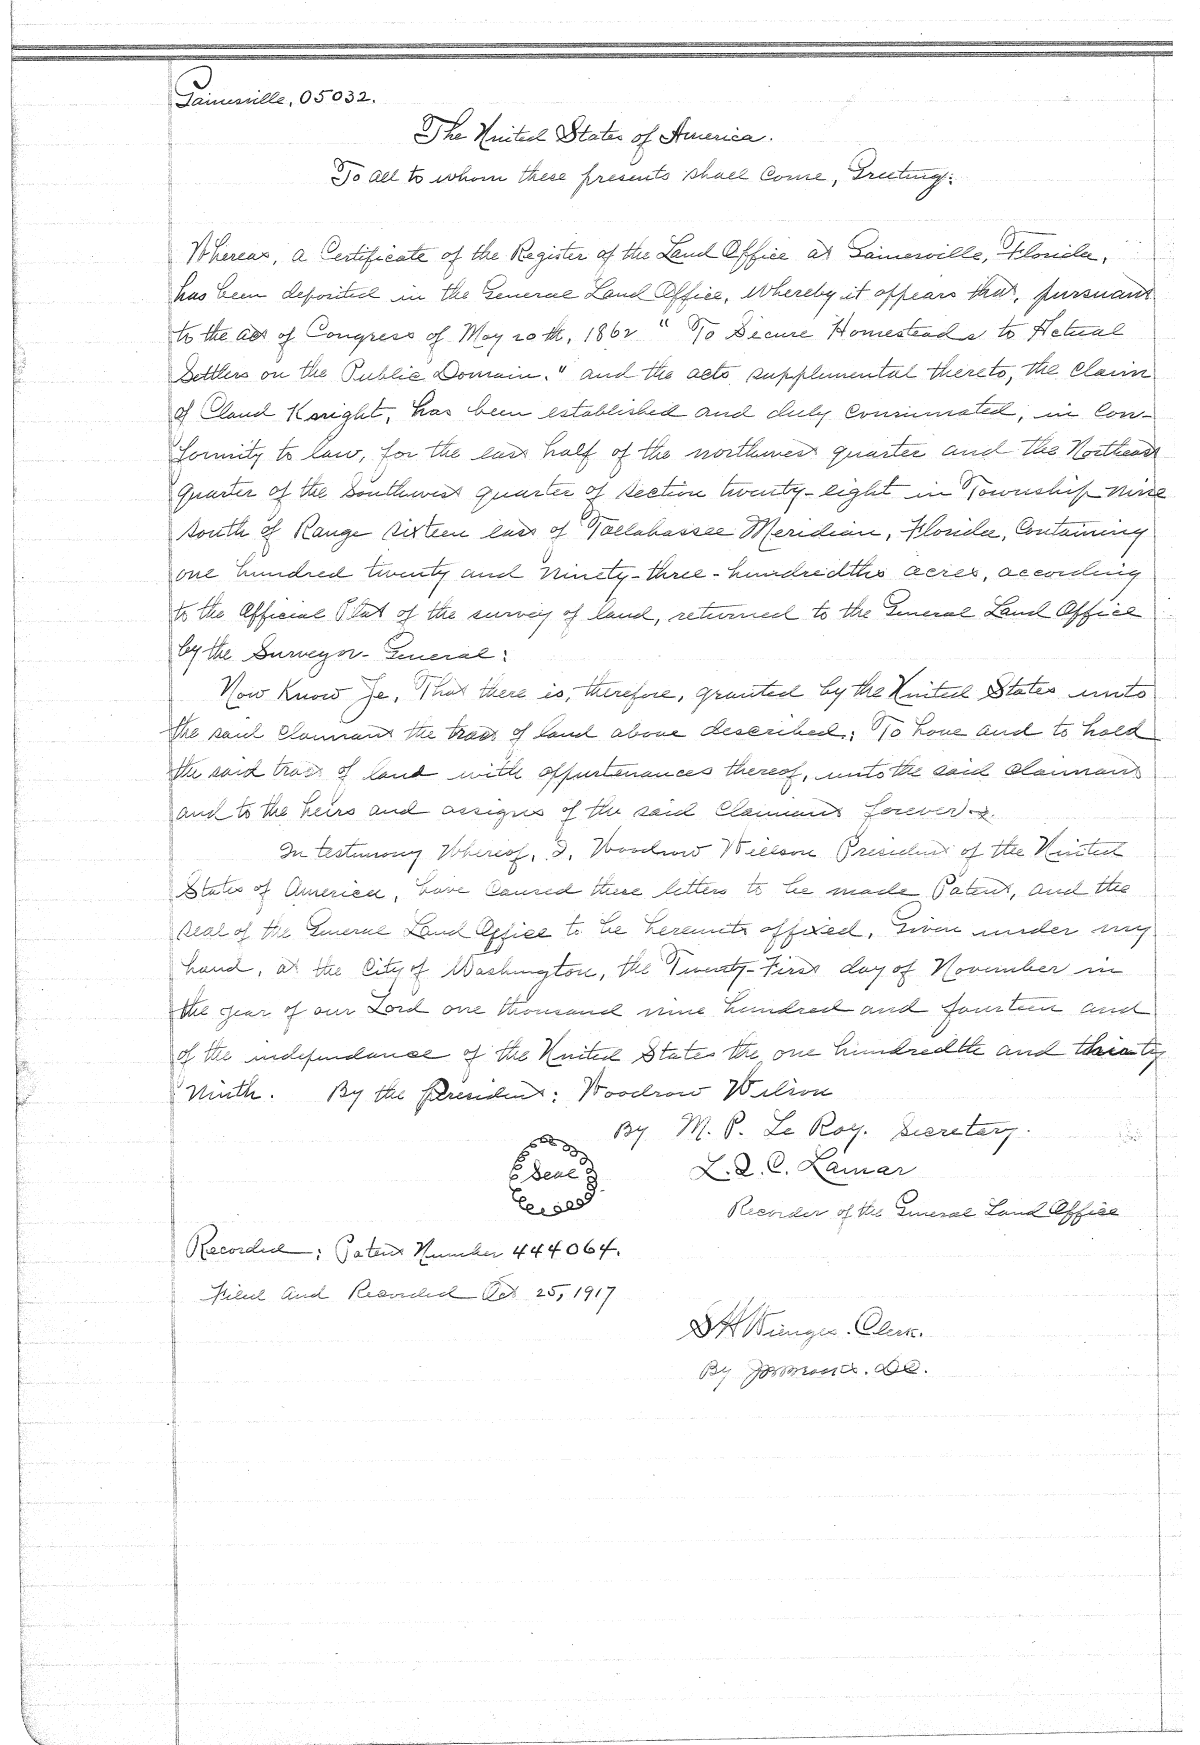 Gainesville, 05032.
The United States of America.
To all to whom these presents shall come, Greeting:
Whereas, a Certificate of the Register of the Land Office at Gainesville, Florida,
has been deposited in the General Land Office, Whereby it appears that, pursuant
to the act of Congress of May 20th, 1862 "To Secure Homesteads to Actual
Settlers on the Public Domain," and the acts supplemental thereto, the claim
of Claud Knight, has been established and duly consumated, in con-
formity to law, for the east half of the northwest quarter and the Northeast
quarter of the Southwest quarter of section twenty-eight in Township nine
south of Range sixteen east of Tallahassee Meridian, Florida, Containing
one hundred twenty and Ninety-three-hundredths acres, according
to the Official Plat of the survey of land, returned to the General Land Office
by the Surveyor-General:
Now Know Ye, That there is, therefore, granted by the United States unto
the said Claimant the tract of land above described; To have and to hold
the said tract of land with appurtenances thereof, unto the said claimant
and to the heirs and assigns of the said Claimant forever.
In testimony Whereof, I, Woodrow Willson President of the United
States of America, have caused these letters to be made Patent, and the
seal of the General Land Office to be hereunto affixed, Given under my
hand, at the City of Washington, the Twenty-First day of November in
the year of our Lord one thousand nine hundred and fourteen and
of the independance of the United States the one hundredth and thirty
Ninth. By the President: Woodrow Wilson
By M. P. Le Roy. Secretary.
Seal L. Q. C. Lamar
Recorder of the General Land Office
Recorded: Patent Number 444064.
Filed and Recorded Oct 25, 1917
Clerk.
By D.C.